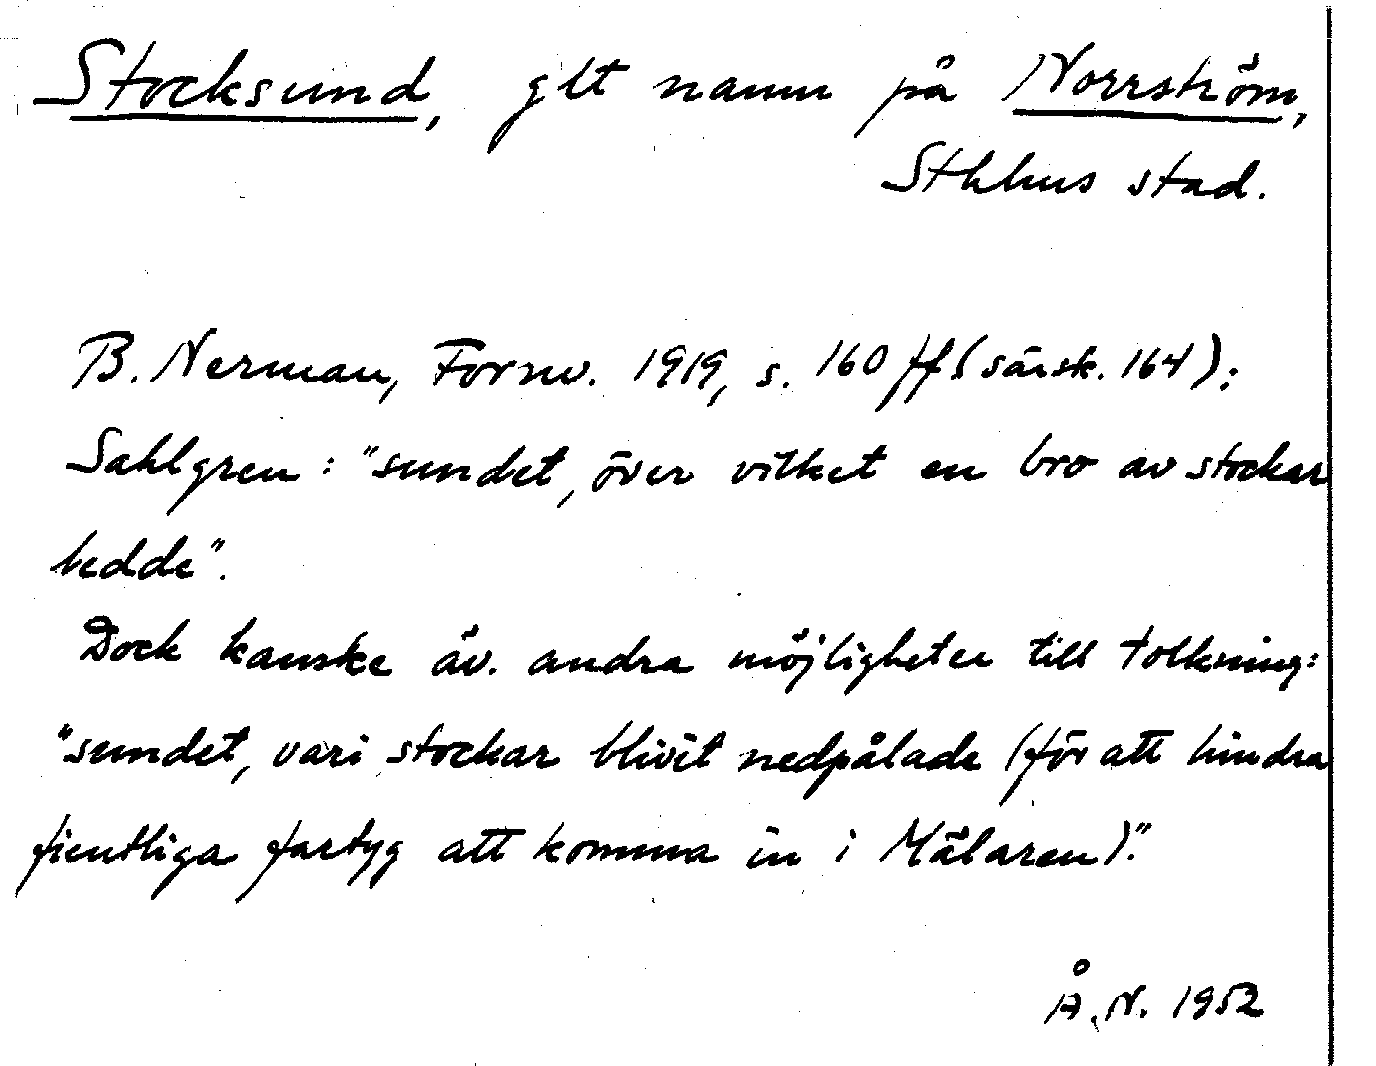 Stocksund, glt namn på Norrström,
Sthlms stad.
B. Nerman, Fornv. 1919, s. 160 ff (särsk. 164);
Sahlgren: "sundet, över vilket en bro av stockar
ledde".
Dock kanske äv. andra möjligheter till tolkning:
"sundet, vari stockar blivit nedpålade (för att hindra
fientliga fartyg att komma in i Mälaren)."
Å. N. 1952